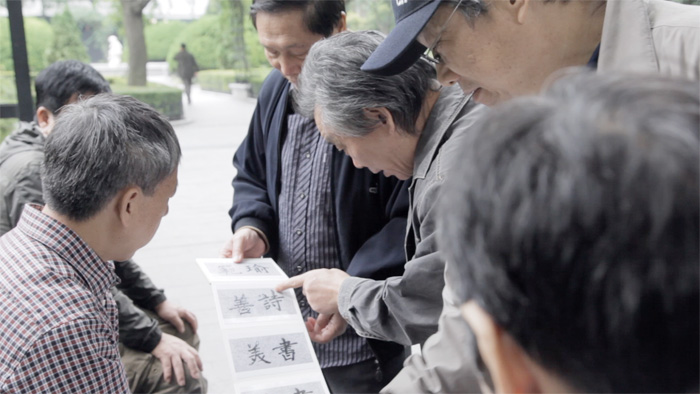 瑜
善詩
美書